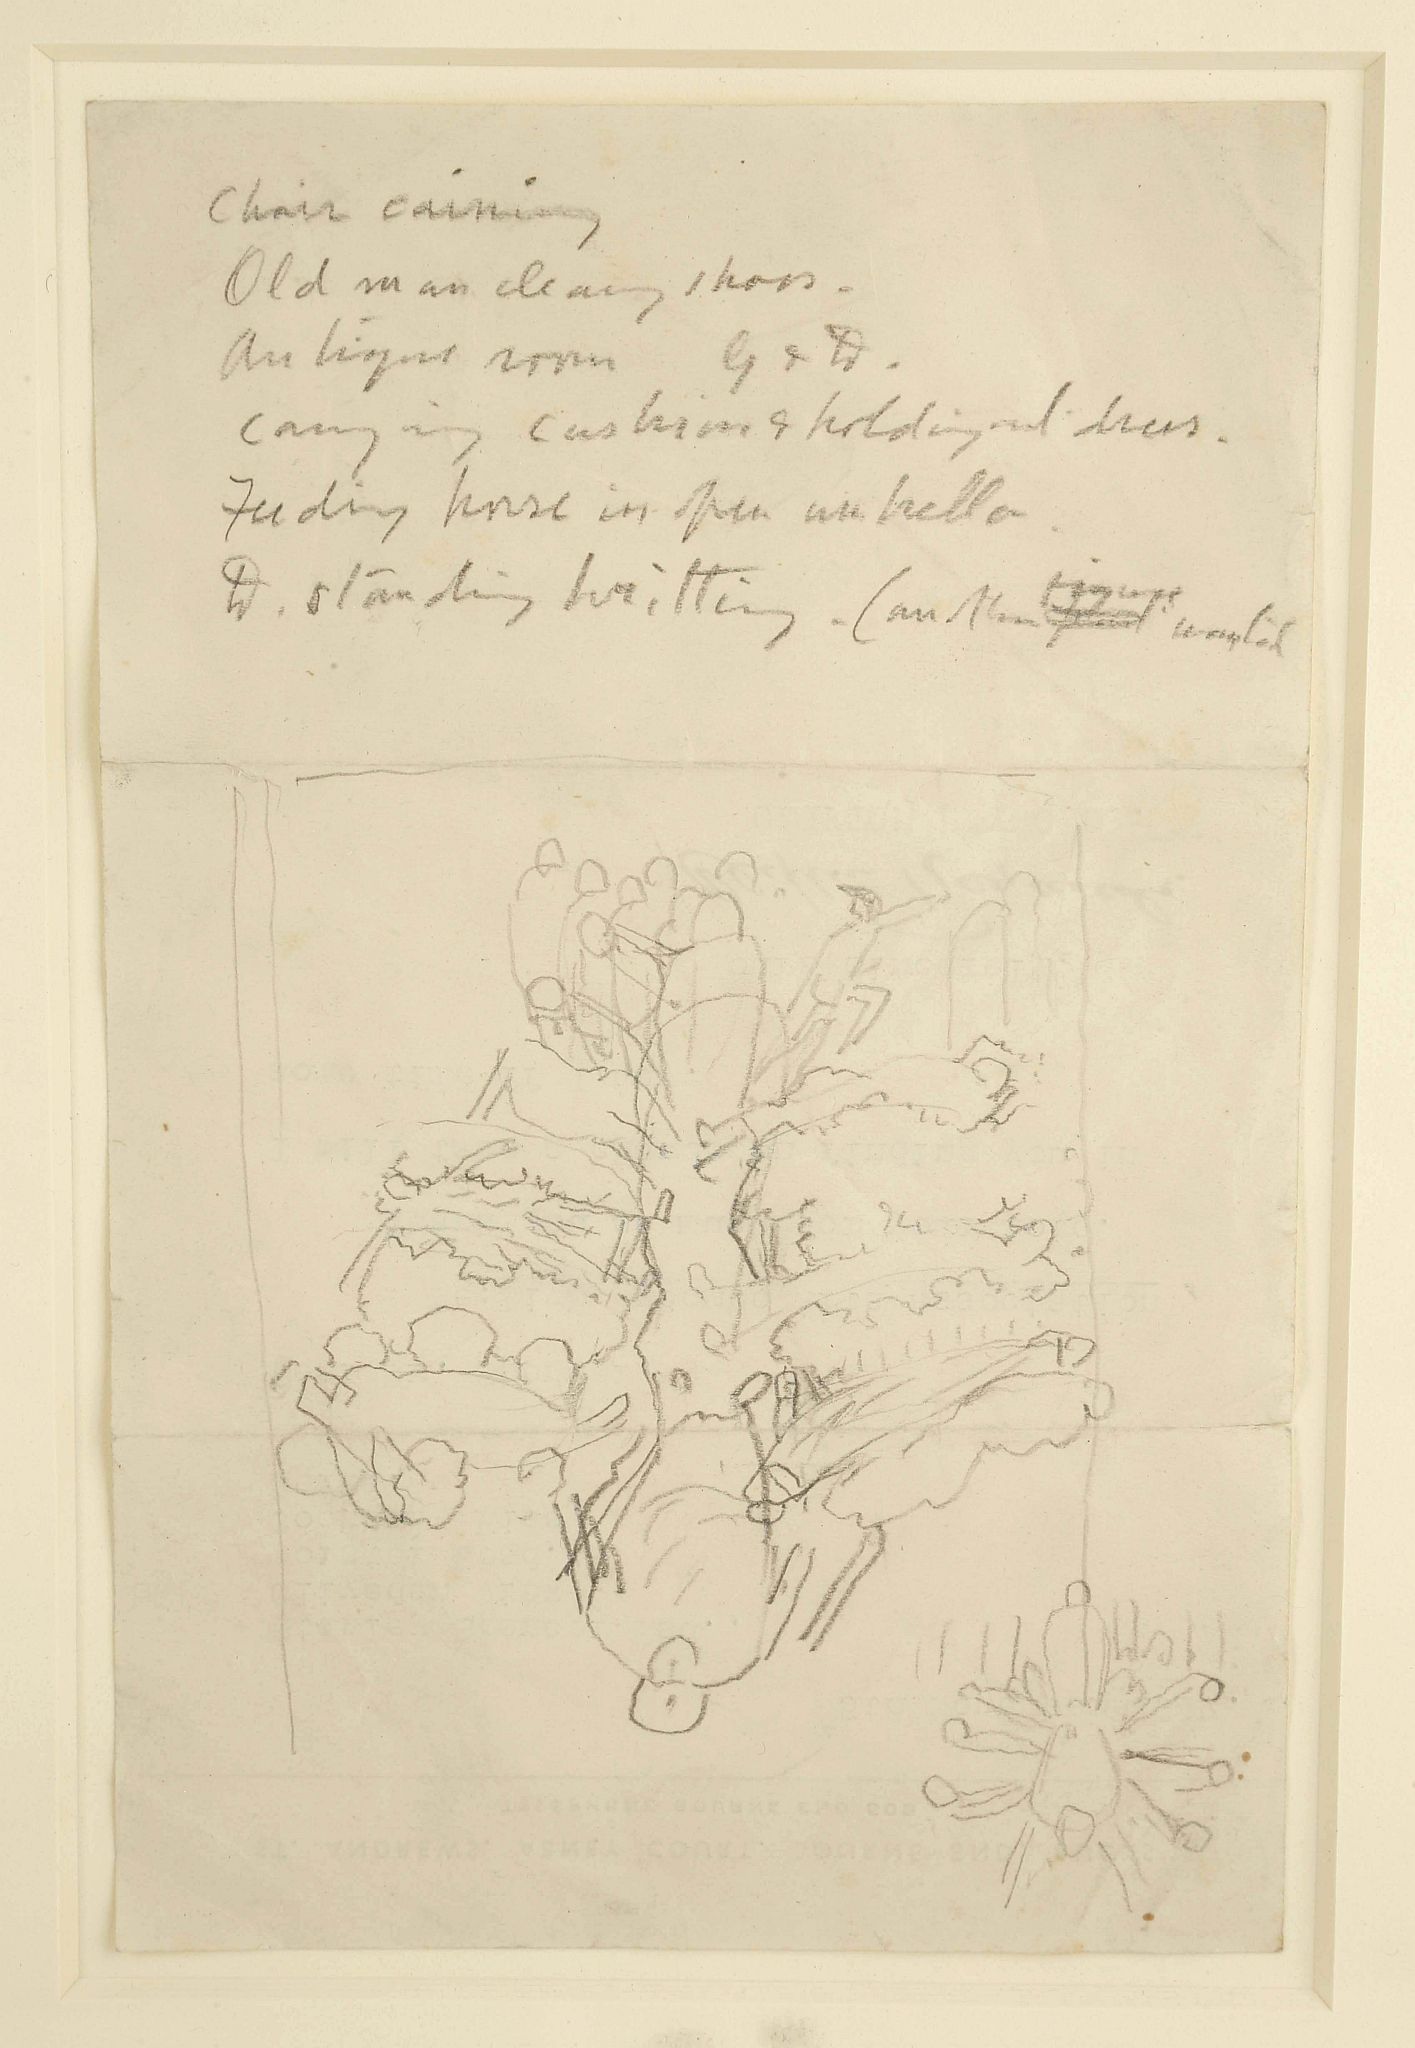 Chair caining
Old man cleaing shoes.
Antique room G & D.
Carrying cushion & holding up dress.
Feeding horse in open umbrella.
D. standing writting. (another figure wanted